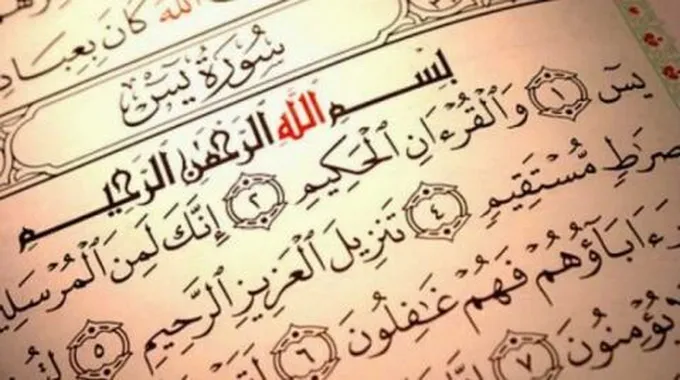 ٱللَّهَ كَانَ بِعِبَادِ
سُورَةُ يسٓ
بِسْمِ ٱللَّهِ ٱلرَّحْمَٰنِ ٱلرَّحِيمِ
يسٓ ١ وَٱلْقُرْءَانِ ٱلْحَكِيمِ ٢ إِنَّكَ لَمِنَ ٱلْمُرْسَلِي
صِرَٰطٍ مُّسْتَقِيمٍ ٤ تَنزِيلَ ٱلْعَزِيزِ ٱلرَّحِيمِ ٥
ءَابَآؤُهُمْ فَهُمْ غَٰفِلُونَ ٦
يُؤْمِنُونَ ٧